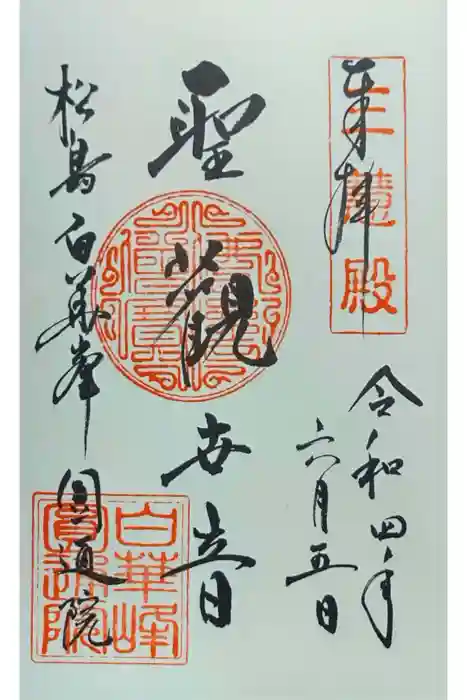 奉拝
三慧殿
令和四年
六月五日
聖觀世音
松島白華峰 圓通院
白華峰
圓通院